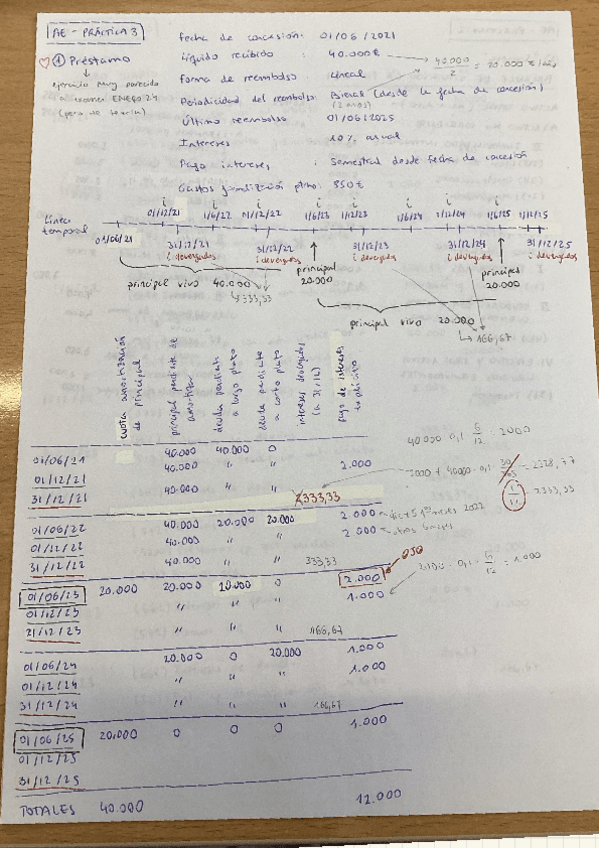 AE - PRÁCTICA 3
① Préstamo
ejercicio muy parecido
a examen ENERO 24
(pero de teoría)
fecha de concesión: 01/06/2021
Líquido recibido : 40.000€
40.000/2 = 20.000 €
forma de reembolso : Lineal
Periodicidad del reembolso: Bienal (desde la fecha de concesión)
(2 años)
Último reembolso 01/06/2025
Intereses : 10% anual
Pago intereses : Semestral desde fecha de concesión
Gastos formalización ptmo: 850€
i i i i i i i i
Línea temporal
01/12/21 1/6/22 01/12/22 1/6/23 1/12/23 1/6/24 1/12/24 1/6/25 1/12/25
01/06/21 31/12/21 31/12/22 31/12/23 31/12/24 31/12/25
i devengados i devengados i devengados i devengados
principal 20.000 principal 20.000
principal vivo 40.000
333,33
principal vivo 20.000
166,67
cuota amortización de principal
principal pendiente de amortizar
deuda pendiente a largo plazo
deuda pendiente a corto plazo
intereses devengados (a 31/12)
pago de intereses
01/06/21 40.000 40.000 0
01/12/21 40.000 " " 2.000
31/12/21 40.000 " " 333,33
40.000 · 0,1 · 6/12 = 2000
01/06/22 40.000 20.000 20.000 2.000
01/12/22 40.000 2.000
31/12/22 40.000 333,33
01/06/23 20.000 20.000 20.000 0 2.000
01/12/23 " " " 1.000
31/12/23 " " " 166,67
01/06/24 20.000 0 20.000 1.000
01/12/24 " " " 1.000
31/12/24 " " " 166,67
01/06/25 20.000 0 0 0 1.000
01/12/25
31/12/25
TOTALES 40.000 12.000